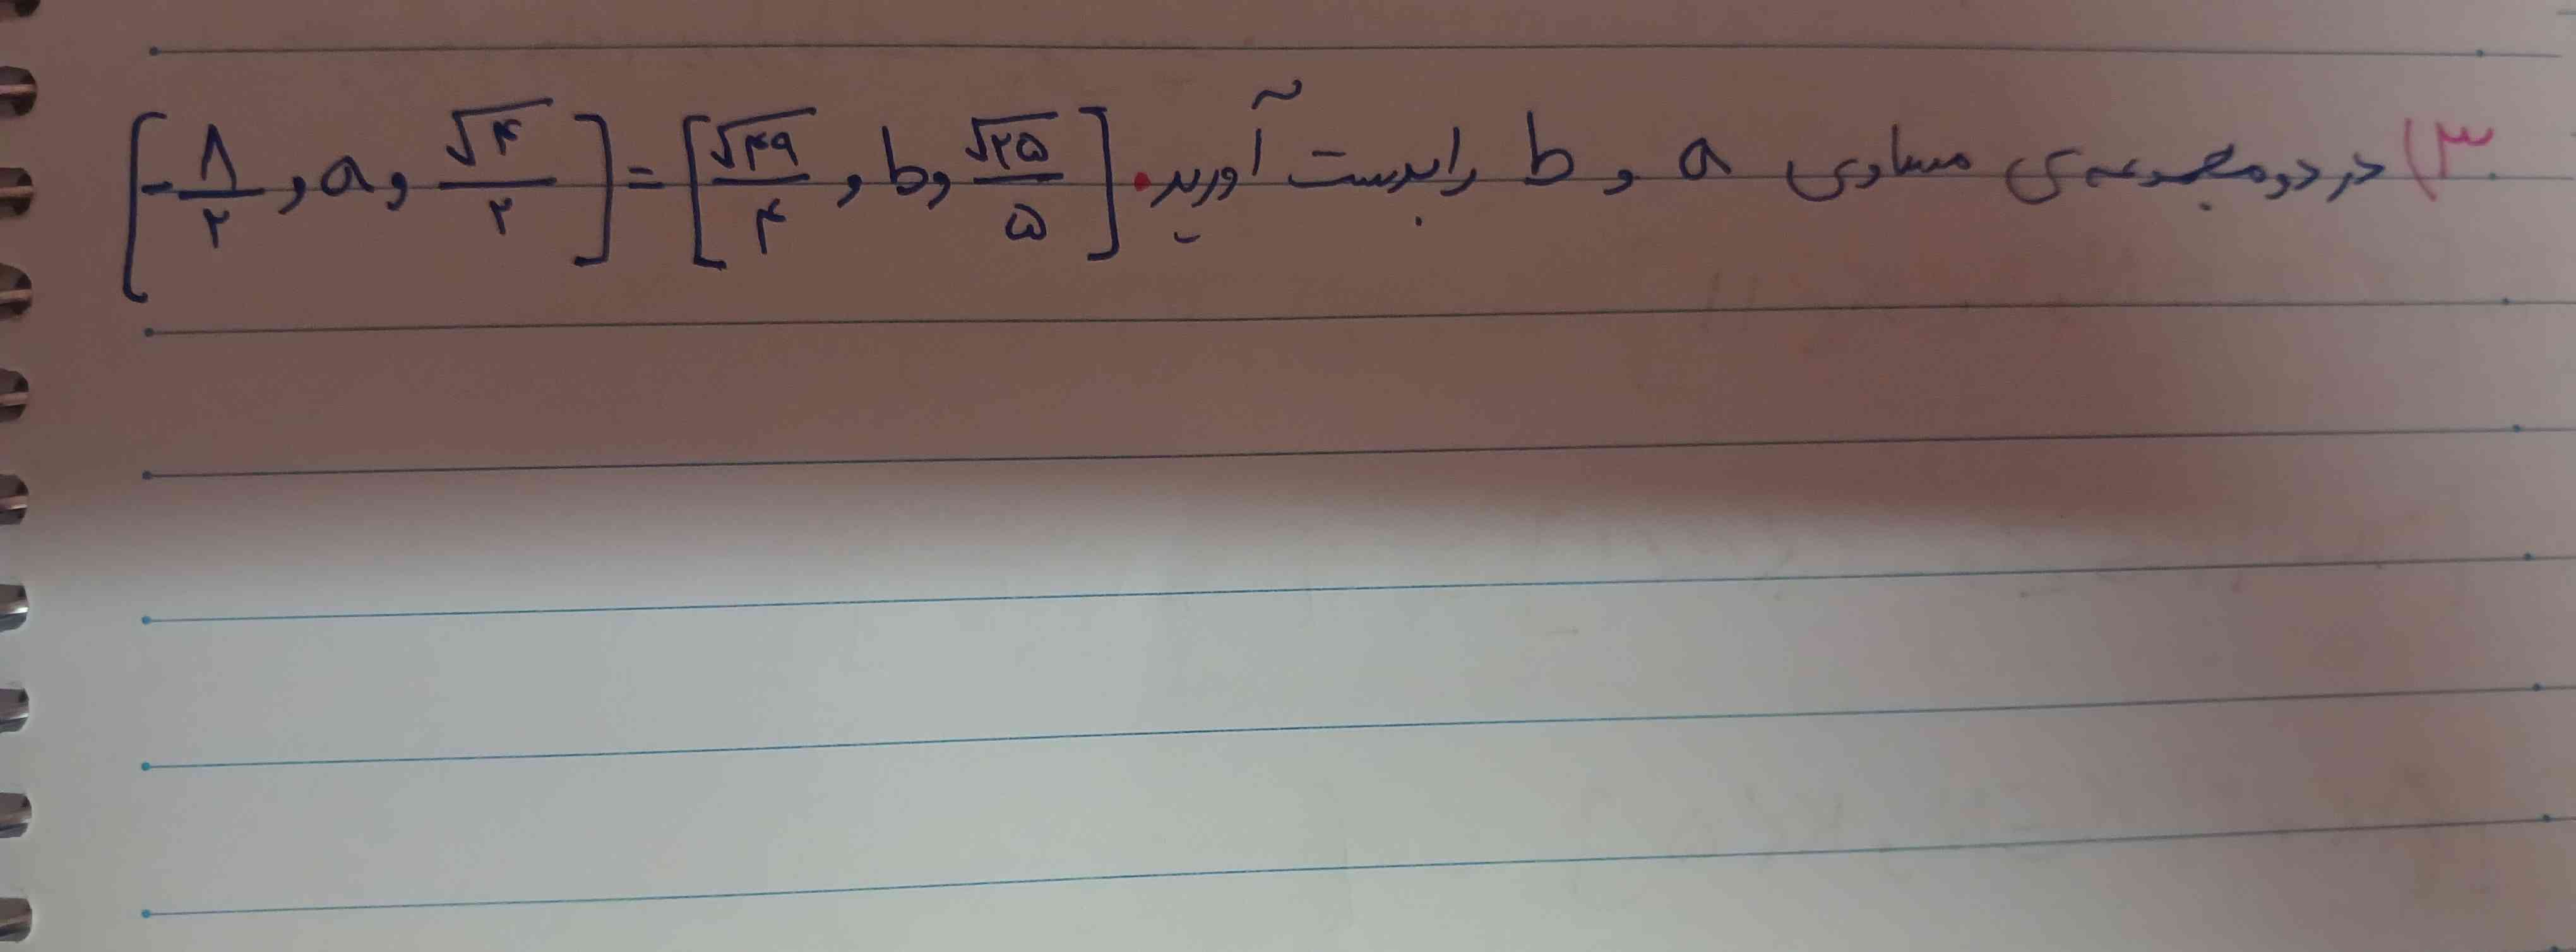 ۳) در دو مجموعه‌ی مساوی a و b را بدست آورید. [-۸/۲ , a , √۴/۲] = [√۴۹/۴ , b , √۲۵/۵]